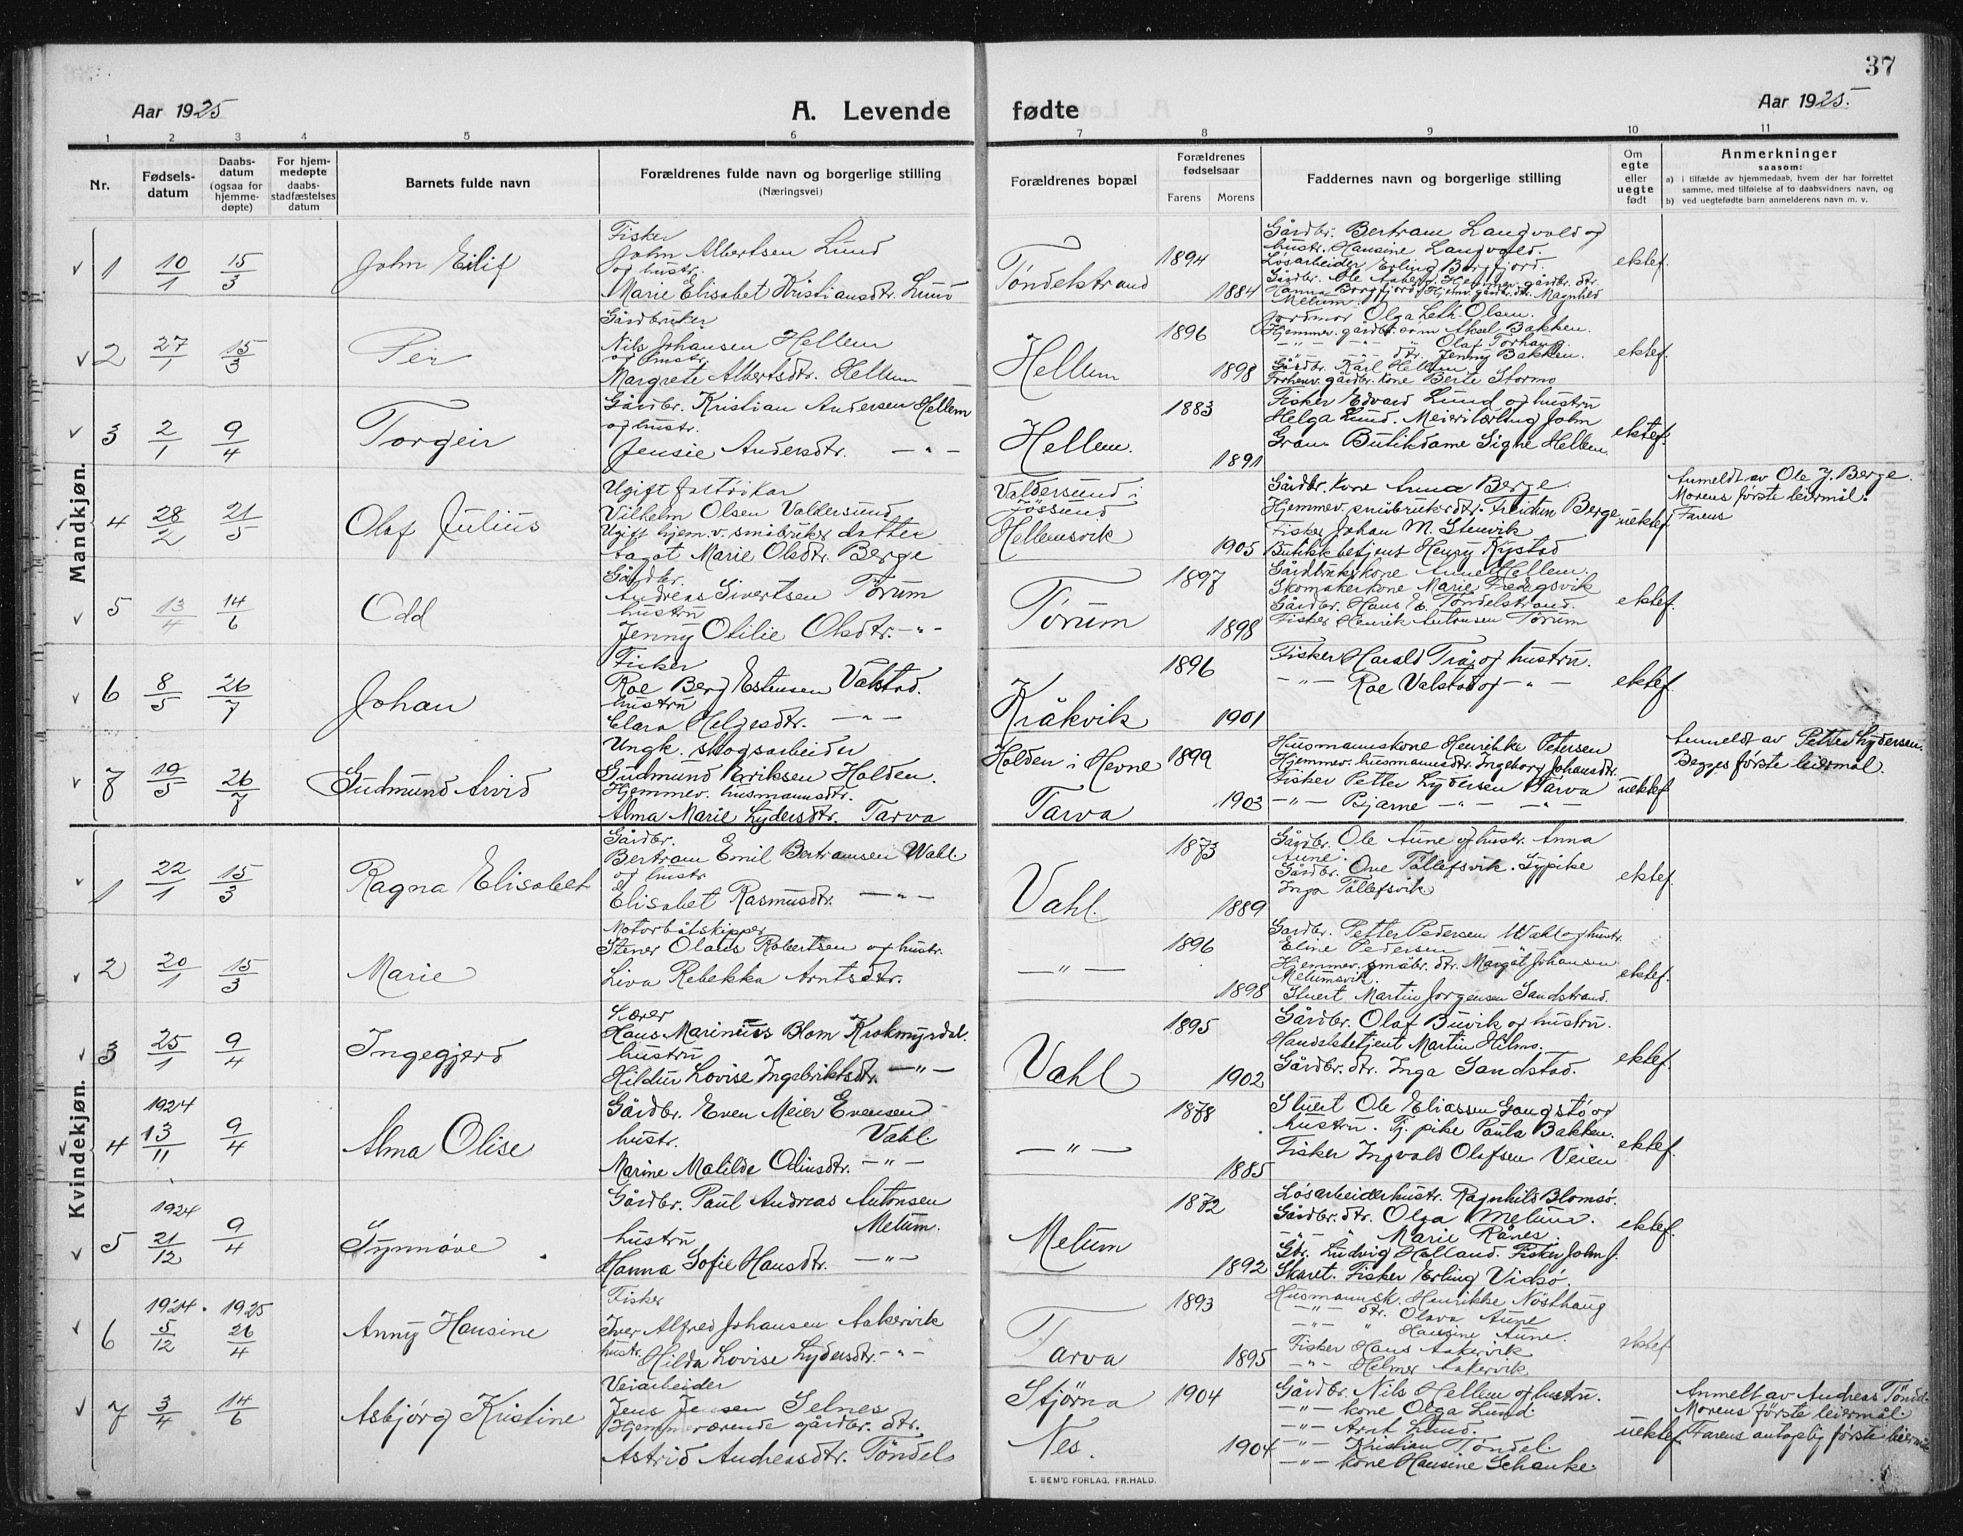 37
Aar 1925
A. Levende
fødte
Aar 1925.
1 2 3 4 5 6 7 8 9 10 11
Nr.
Fødsels-
datum
Daabs-
datum
(ogsaa for
hjemme-
døpte)
For hjem-
medøpte
daabs-
stadfæstelses
datum
Barnets fulde navn
Forældrenes fulde navn og borgerlige stilling
(Næringsvei)
Forældrenes bopæl
Forældrenes
fødselsaar
Farens Morens
Faddernes navn og borgerlige stilling
Om
egte
eller
uegte
født
Anmerkninger
saasom:
a) i tilfælde av hjemmedaab, hvem der har forrettet
samme, med tilføielse af to daabsvidners navn, og
b) ved uegtefødte barn anmelderens navn m. v.
Mandkjøn.
1 10/1 15/3 John Eilif
Fisker
John Albertsen Lund
og hustr.
Marie Elisabet Kristiansdtr. Lund
Tøndelstrand 1894 1884
Gårdbr. Bertram Langvold og
hustr. Hansine Langvold.
Løsarbeider Erling Borgfjord.
Gårdbr. Ole Hjemmev. gårdbr. dtr.
Hanna Borgfjord. Hjemv. gårdbr. dtr. Magnhild
Melum.
ektef.
2 27/1 15/3 Per
Gårdbruker
Nils Johansen Hellem
og hustr.
Margrete Albertsdtr. Hellem
Hellem 1896 1898
Jordmor Olga Leth-Olsen.
Hjemmev. gårdbr. sønn Aksel Bakken.
-"- -"- " Olaf Torhaug.
-"- -"- dtr. Jenny Bakken.
Gårdbr. Karl Hellem.
Forhenv. gårdbr. kone Berte Stormo
ektef.
3 2/1 9/4 Torgeir
Gårdbr. Kristian Andersen Hellem
og hustr.
Jensie Andersdtr. -"-
Hellem. 1883 1891
Fisker Edvard Lund og hustru
Helga Lund. Meierilærling John
Gran. Butikdame Signe Hellem.
ektef.
4 28/2 21/5 Olaf Julius
Ugift
Vilhelm Olsen Valdersund
Ugift hjem. v. småbruker datter
Aagot Marie Olsdtr. Berge
Valdersund i
Jössund
Hellemsvik 1905
Gårdbr. kone Anna Berge.
Hjemmev. småbrukrdtr. Freidun Berge
Fisker Johan M. Stenvik
Butikkbetjent Henry Rystad
uektef.
Anmeldt av Ole J. Berge.
Morens første leiermål.
Farens
5 13/4 14/6 Odd
Gårdbr.
Andreas Sivertsen Tørum
hustru
Jenny Otilie Olsdtr. -"-
Tørum 1897 1898
Gårdbruks. kone Anne Hellem.
Skomakerkone Marie
Gårdbr. Hans E. Tøndelstrand.
Fisker Henrik Antonsen Tørum
ektef.
6 8/5 26/7 Johan
Fisker
Roe Berg Estensen Valstad.
hustru
Clara Helgesdtr. -"-
Kråkvik 1896 1901
Fisker Harald Trå og hustru.
-"- Roe Valstad og -"-
ektef.
7 19/5 26/7 Gudmund Arvid
Ungk. skogsarbeider
Gudmund Eriksen Holden.
Hjemmev. husmannsdtr.
Alma Marie Lydersdtr. Tarva
Holden i Hevne 1899
Tarva 1903
Husmannskone Henrikke Petersen
Hjemmev. husmannsdtr. Ingeborg Johansdtr.
Fisker Petter Lydersen Tarva
-"- Bjarne -"- -"-
uektef.
Anmeldt av Petter Lydersen.
Begges første leiermål.
Kvindekjøn.
1 22/1 15/3 Ragna Elisabet
Gårdbr.
Bertram Emil Bertramsen Wahl.
og hustr
Elisabet Rasmusdtr. -"-
Vahl. 1873 1889
Gårdbr. Ole Aune og hustr. Anna
Aune.
Gårdbr. Ove Tøllefsvik. Sypike
Inga Tøllefsvik
ektef.
2 20/1 15/3 Marie
Motorbåtskipper
Stener Olaus Robertsen og hustr.
Liva Rebekka Arntsdtr.
-"- 1896 1898
Gårdbr. Petter Pedersen Wahl og hustr.
Eline Pedersen -"-
Hjemmev. småbr. dtr. Margot Johansen
Melumsvik.
Stuert Martin Jørgensen Sandstrand.
ektef.
3 25/1 9/4 Ingegjerd
Lærer
Hans Marinius Blom Krokmyrdal.
hustru
Hildur Lovise Ingebriktsdtr. -"-
Vahl 1895 1902
Gårdbr. Olaf Buvik og hustru.
Handelsbetjent Martin Hilmo.
Gårdbr. dtr. Inga Sandstad.
ektef.
4 1924 13/11 9/4 Alma Olise
Gårdbr. Even Meier Evensen
hustr. Vahl.
Marine Matilde Oliusdtr. -"-
-"- 1878 1885
Stuert Ole Eliassen Gangstø og
hustru. Tj. pike Paula Bakken.
Fisker Ingvald Olefsen Veien
ektef.
5 1924 21/12 9/4 Synnøve
Gårdbr. Paul Andreas Antonsen
hustru Melum.
Hanna Sofie Hansdtr. -"-
Melum 1872 1892
Løsarbeiderhustr. Ragnhild Blomsø.
Gårdbr. dtr. Olga Melum.
-"- " Marie Rånes.
Gbr. Ludvig Holland. Fisker John J.
Skaret. Fisker Erling Vidsø.
ektef.
6 1924 5/12 1925 26/4 Anny Hansine
Fisker
Iver Alfred Johansen Aakervik
hustr.
Hilda Lovise Lydersdtr. -"-
Tarva 1893 1895
Husmannsk. Henrikke Nøsthaug
-"- dtr. Olava Aune
-"- " Hansine Aune.
Fisker Hans Aakervik
-"- Helmer Aakervik
ektef
7 3/4 14/6 Asbjørg Kristine
Veiarbeider
Jens Jensen Selnes
Hjemmeværende gårdbr. dtr.
Astrid Andreasdtr. Tøndel
Stjørna 1904
Nes. 1904
Gårdbr. Nils Hellem og hustru.
-"- kone Olga Lund
-"- Arnt Lund.
-"- Kristian Tøndel.
-"- kone Hansine Schanke.
uektef.
Anmelt av Andreas Tøndel.
Morens første leiermål.
Farens antagelig første leiermål
E. SEM'S FORLAG, FR.HALD.